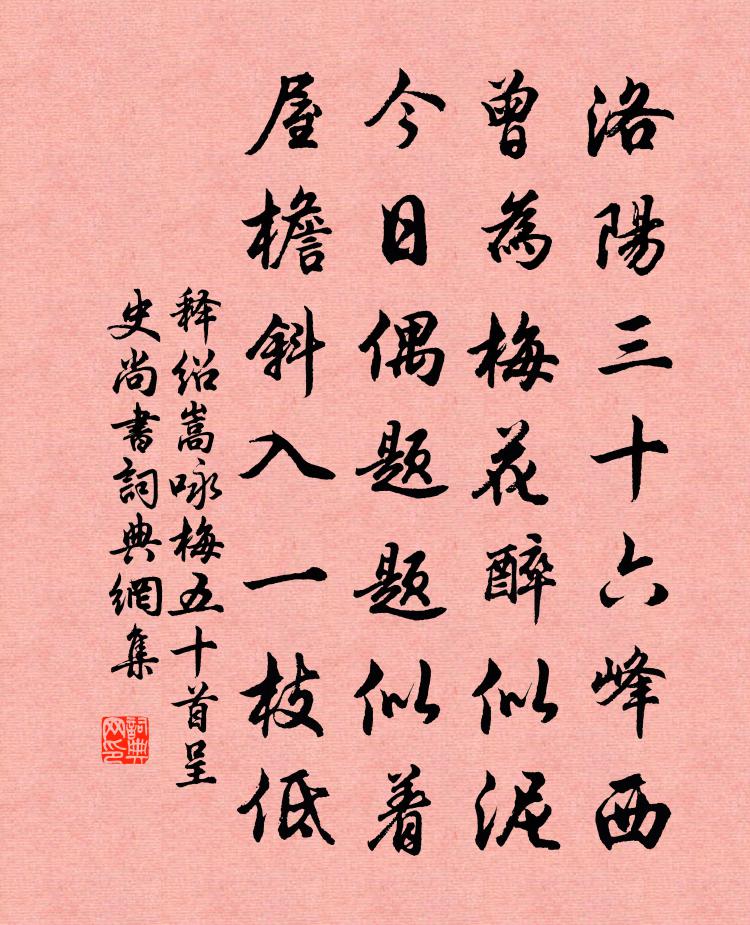 洛陽三十六峰西
曾為梅花醉似泥
今日偶题题似着
屋檐斜入一枝低
释绍嵩咏梅五十首呈
史尚書詞典網集
詞典网印